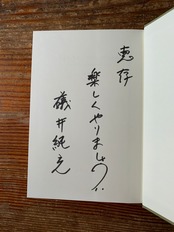 恵存
楽しくやりましょう!
礒井純充